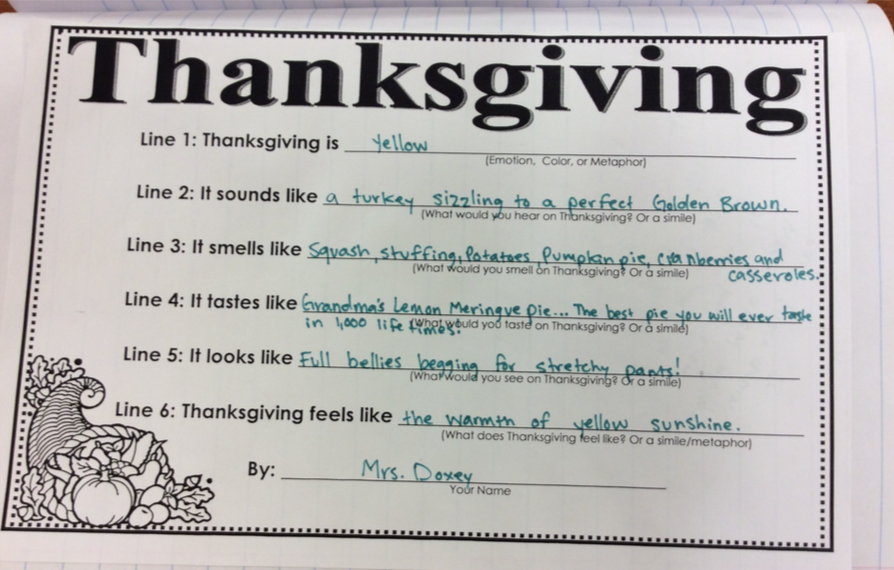 Thanksgiving
Line 1: Thanksgiving is yellow
(Emotion, Color, or Metaphor)
Line 2: It sounds like a turkey sizzling to a perfect Golden Brown.
(What would you hear on Thanksgiving? Or a simile)
Line 3: It smells like Squash, stuffing, Potatoes, Pumpkin pie, cranberries and
(What would you smell on Thanksgiving? Or a simile) casseroles.
Line 4: It tastes like Grandma's Lemon Meringue Pie... The best pie you will ever taste
in 1,000 life times! (What would you taste on Thanksgiving? Or a simile)
Line 5: It looks like Full bellies begging for stretchy pants!
(What would you see on Thanksgiving? Or a simile)
Line 6: Thanksgiving feels like the warmth of yellow sunshine.
(What does Thanksgiving feel like? Or a simile/metaphor)
By: Mrs. Doxey
Your Name